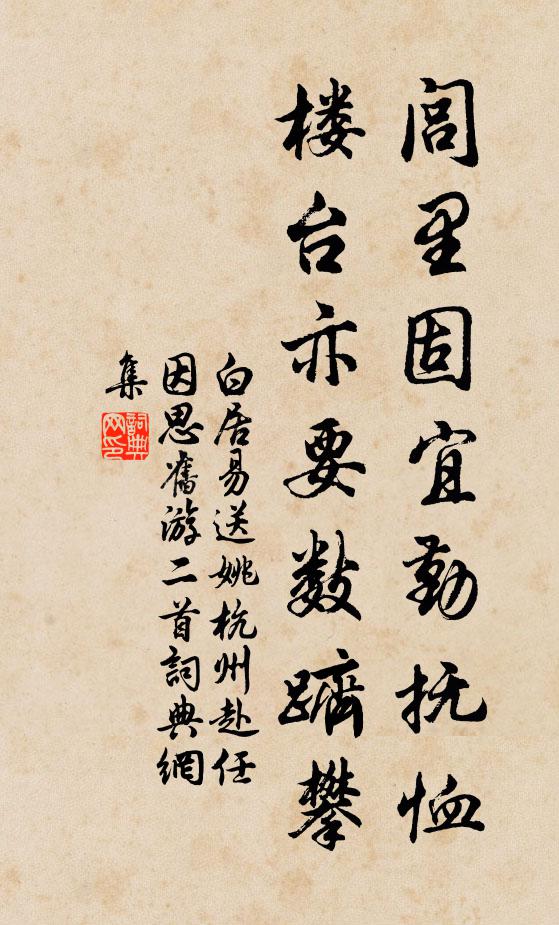 闾里固宜勤抚恤
楼台亦要数跻攀
白居易送姚杭州赴任
因思舊游二首詞典網
集
詞典
网印